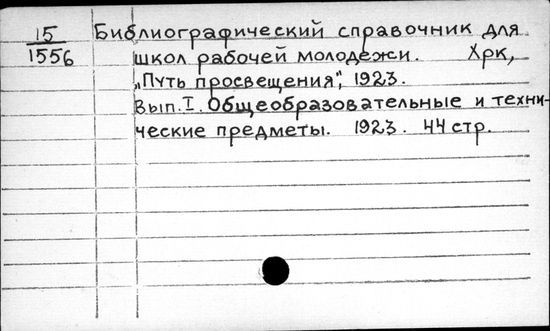 15 Библиографический справочник для
1556 школ рабочей молодежи. Хрк,
„Путь просвещения", 1923.
Вып. I. Общеобразовательные и техни-
ческие предметы. 1923. 44 стр.